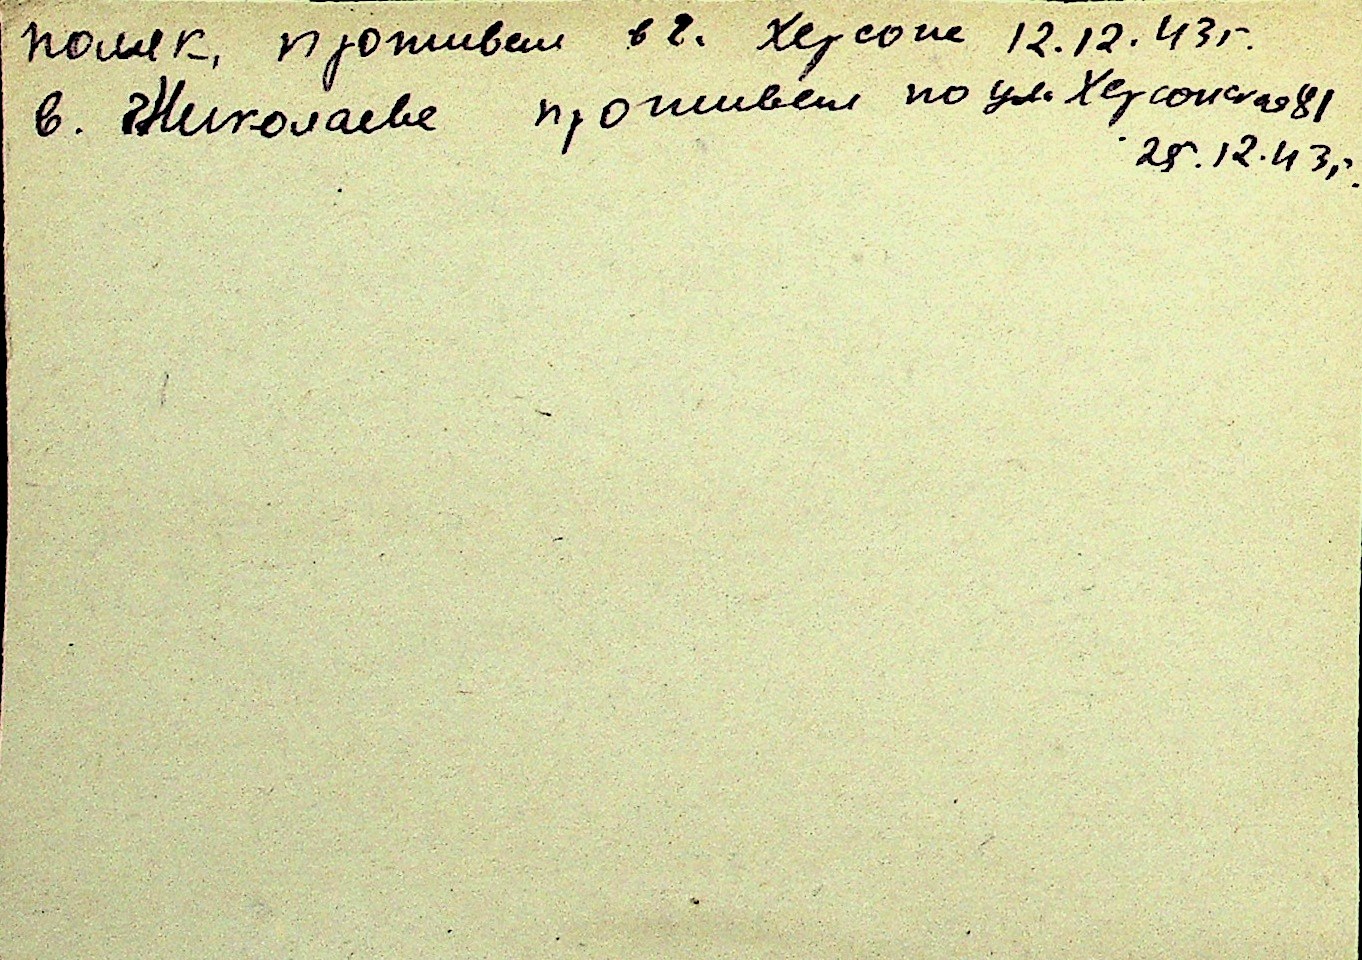 поляк, проживал в г. Херсоне 12.12.43г.
в. Николаеве проживал по ул. Херсонская 81
25.12.43г.